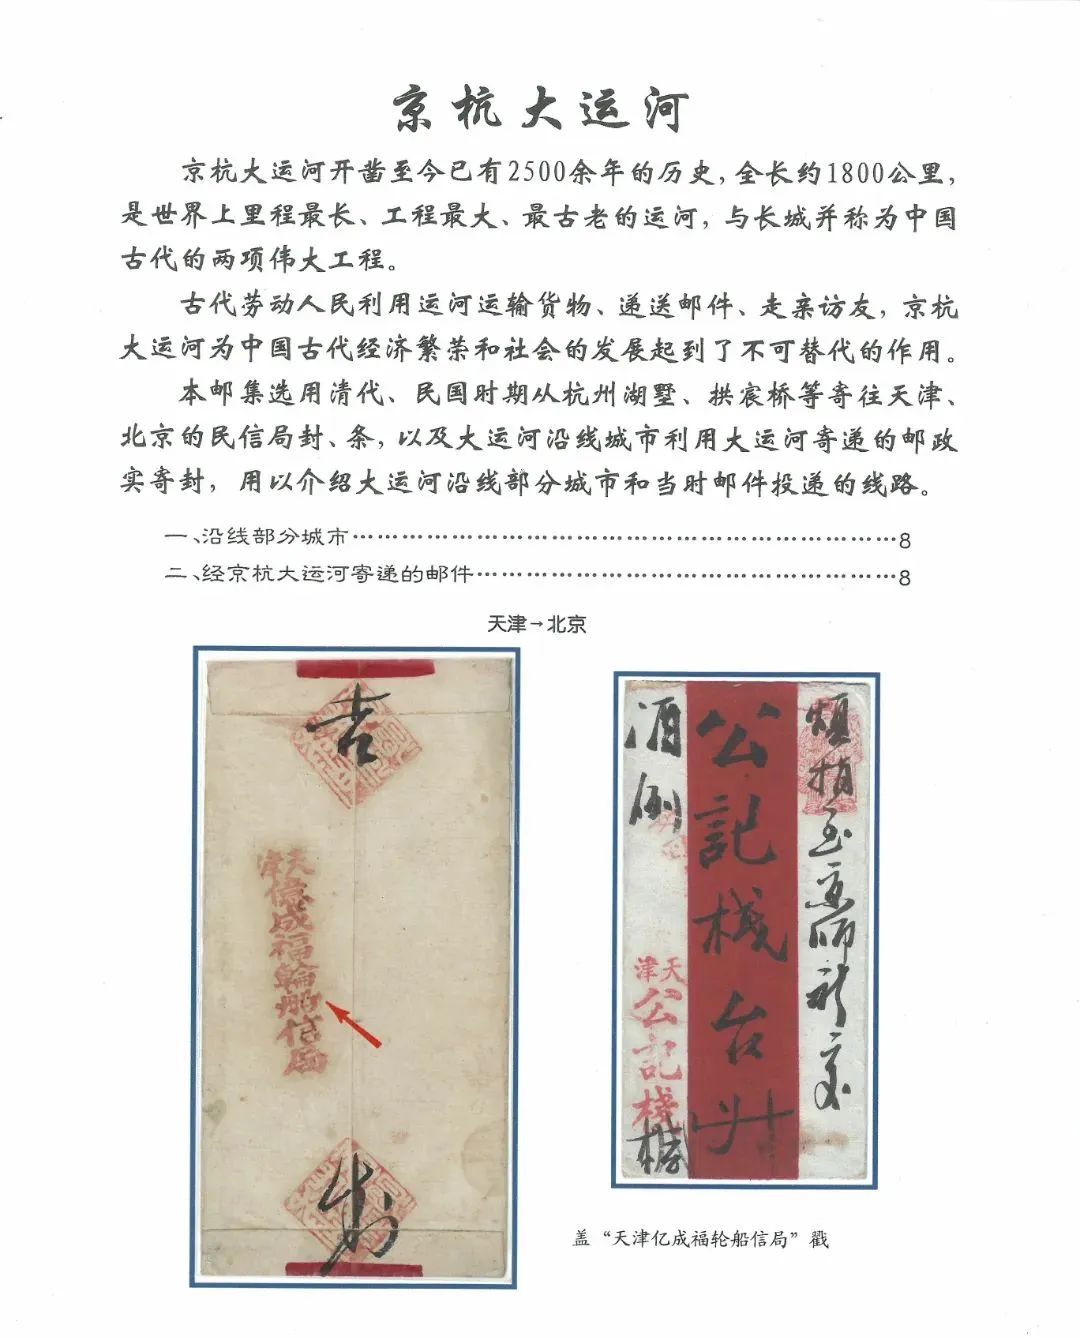 京杭大运河
京杭大运河开凿至今已有2500余年的历史，全长约1800公里，
是世界上里程最长、工程最大、最古老的运河，与长城并称为中国
古代的两项伟大工程。
古代劳动人民利用运河运输货物、递送邮件、走亲访友，京杭
大运河为中国古代经济繁荣和社会的发展起到了不可替代的作用。
本邮集选用清代、民国时期从杭州湖墅、拱宸桥等寄往天津、
北京的民信局封、条，以及大运河沿线城市利用大运河寄递的邮政
实寄封，用以介绍大运河沿线部分城市和当时邮件投递的线路。
一、沿线部分城市…………………………………………………………8
二、经京杭大运河寄递的邮件……………………………………………8
天津→北京
吉
天津
億成福輪船信局
煩捎至京師
公記棧台
酒例
天津
公記棧
盖“天津亿成福轮船信局”戳